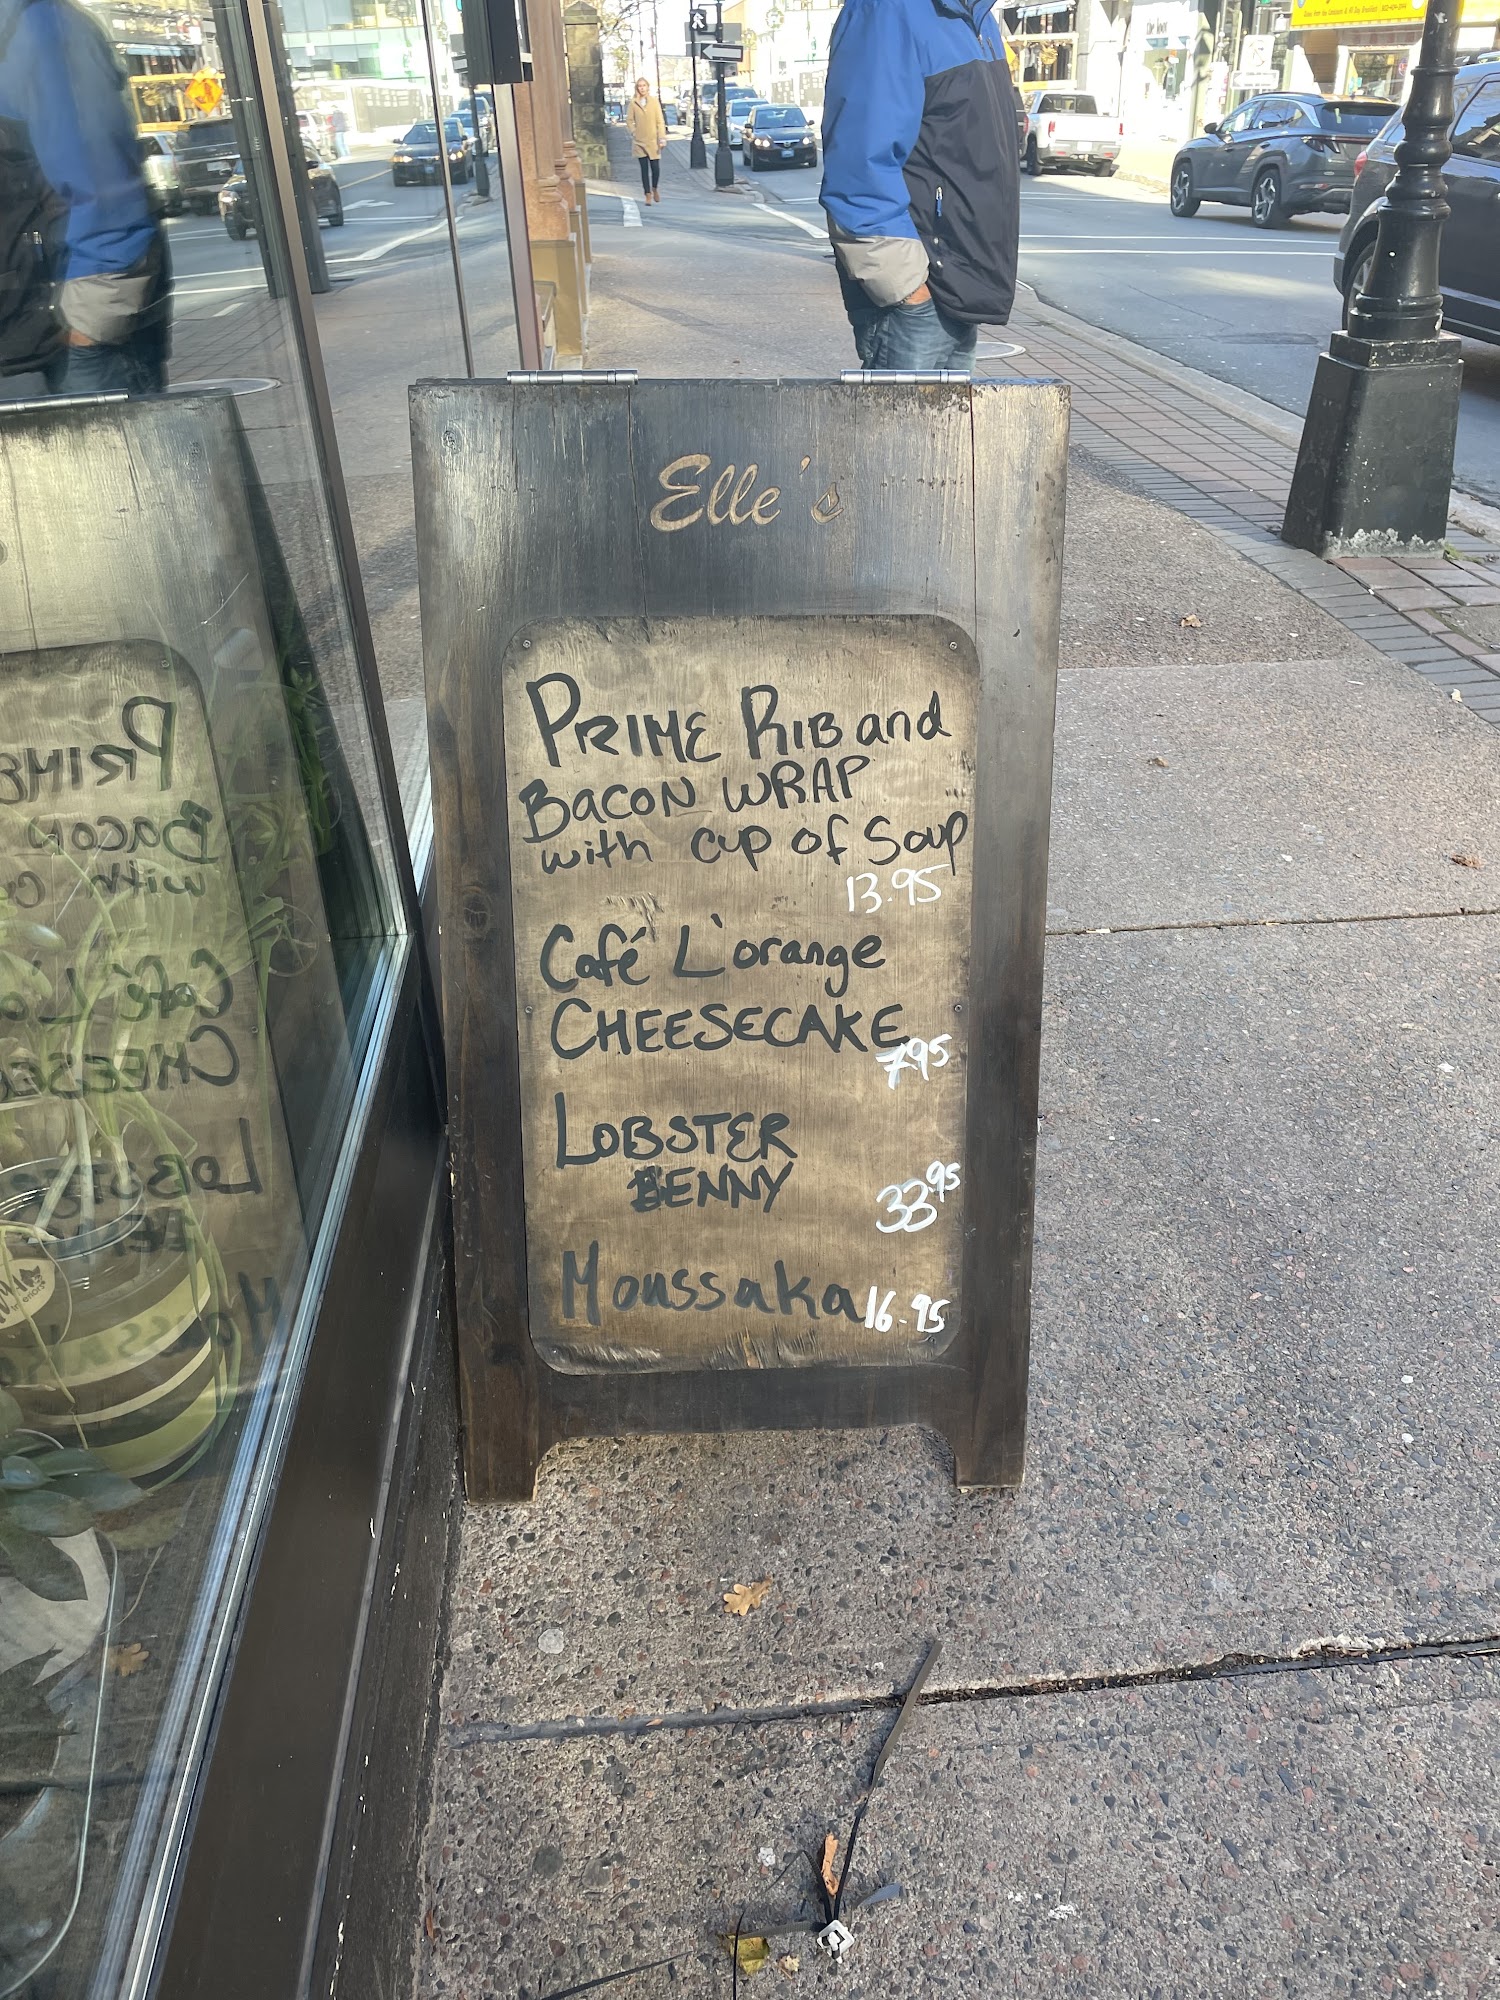 Elle's
PRIME RIB and
BACON WRAP
with cup of Soup
13.95
Café L'orange
CHEESECAKE
7.95
LOBSTER
BENNY
33.95
Moussaka 16.95